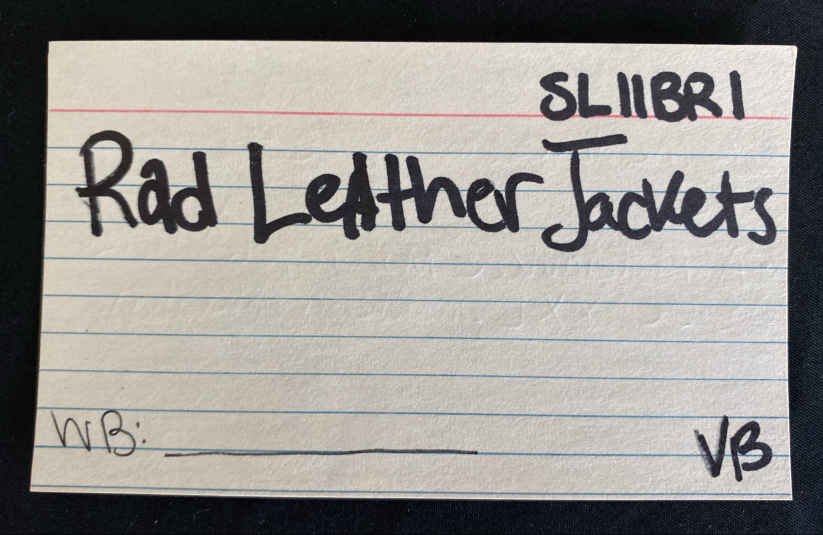 SL11BR1
Rad Leather Jackets
WB: ____________
VB